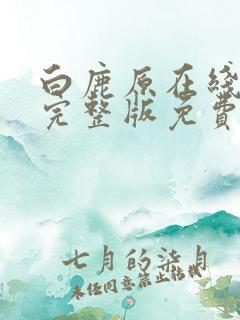 白鹿原在线
完整版免费
七月的柒月
未经同意禁止粘贴